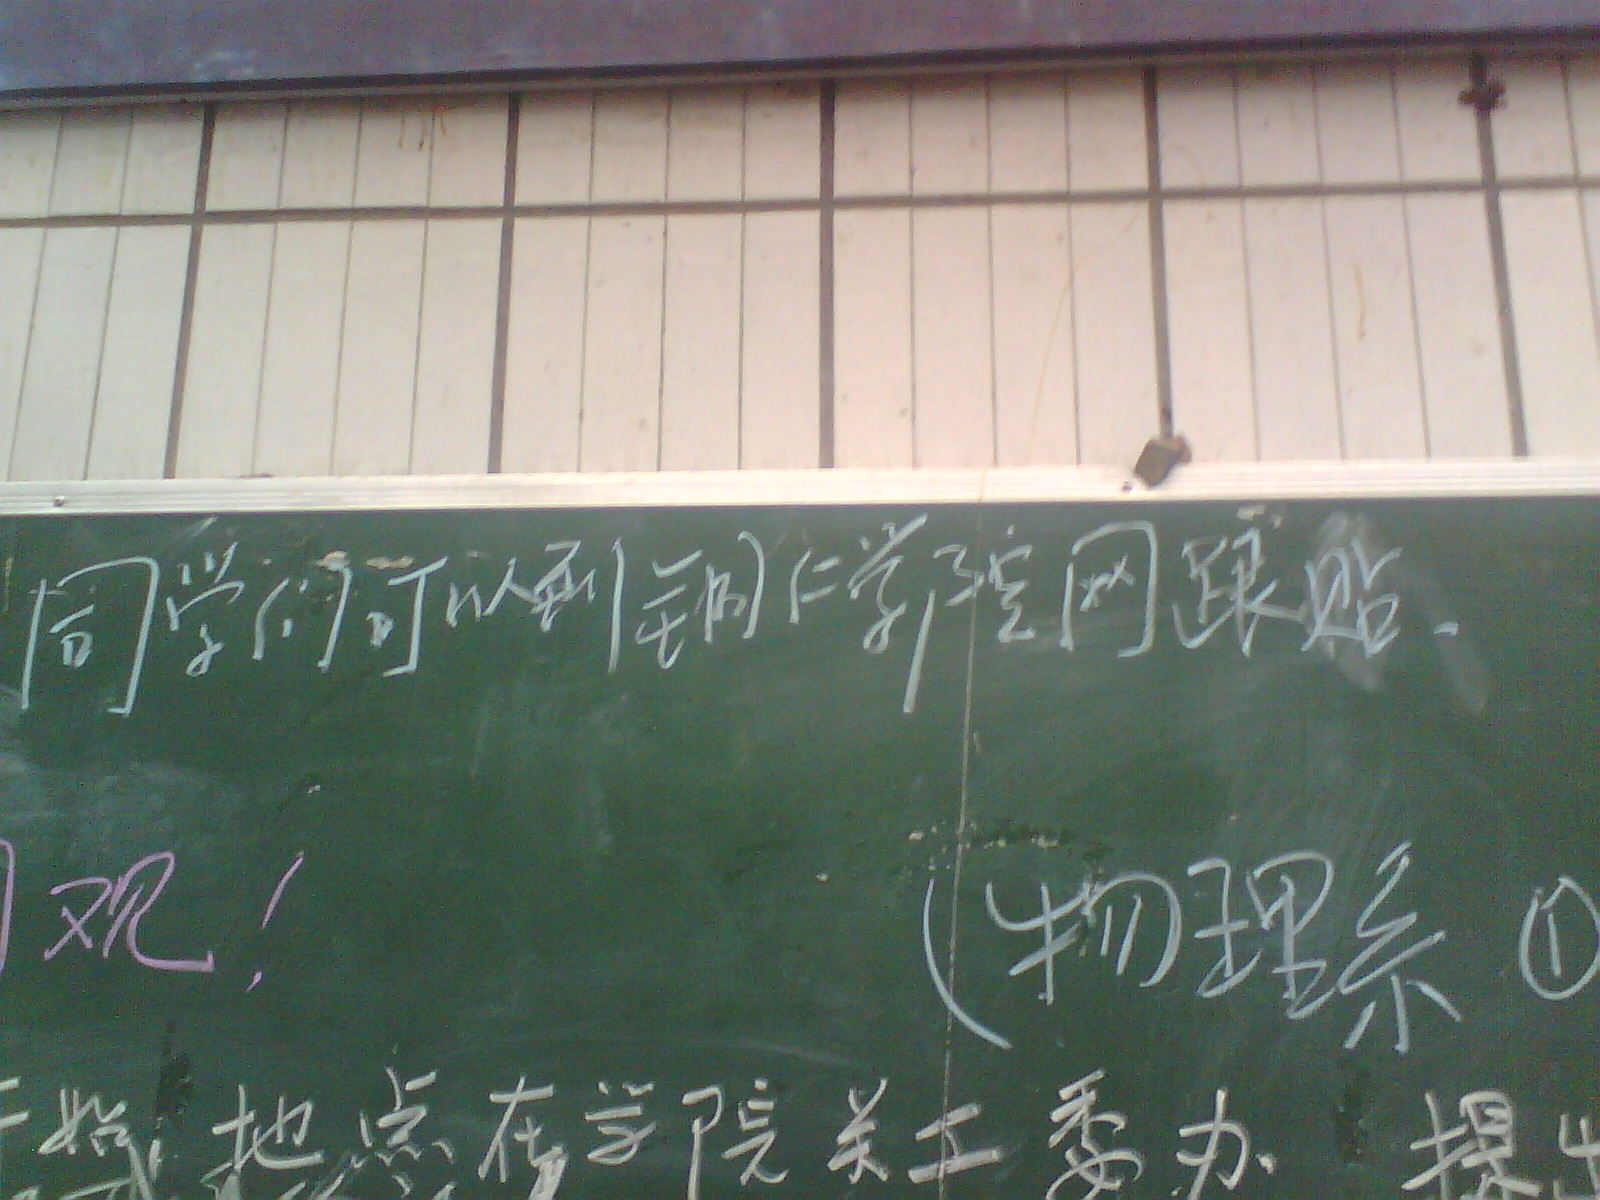 同学们可以到铜仁学院网跟贴.
观!
(物理系①
开始 地点在学院关工委办 提出